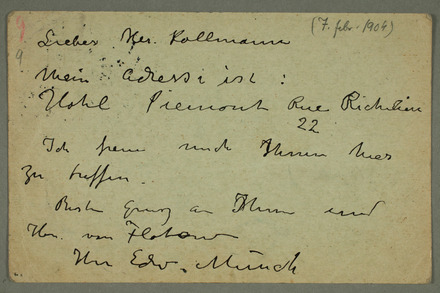 (7. febr - 1904)
9
Lieber Her. Kollmann
Mein adresse ist:
Hotel Piemont Rue Richelieu
22
Ich freue mich Ihnen hier
zu treffen.
Beste Gruss an Ihnen und
Hrn. von Flotow
Ihr Edv. Munch